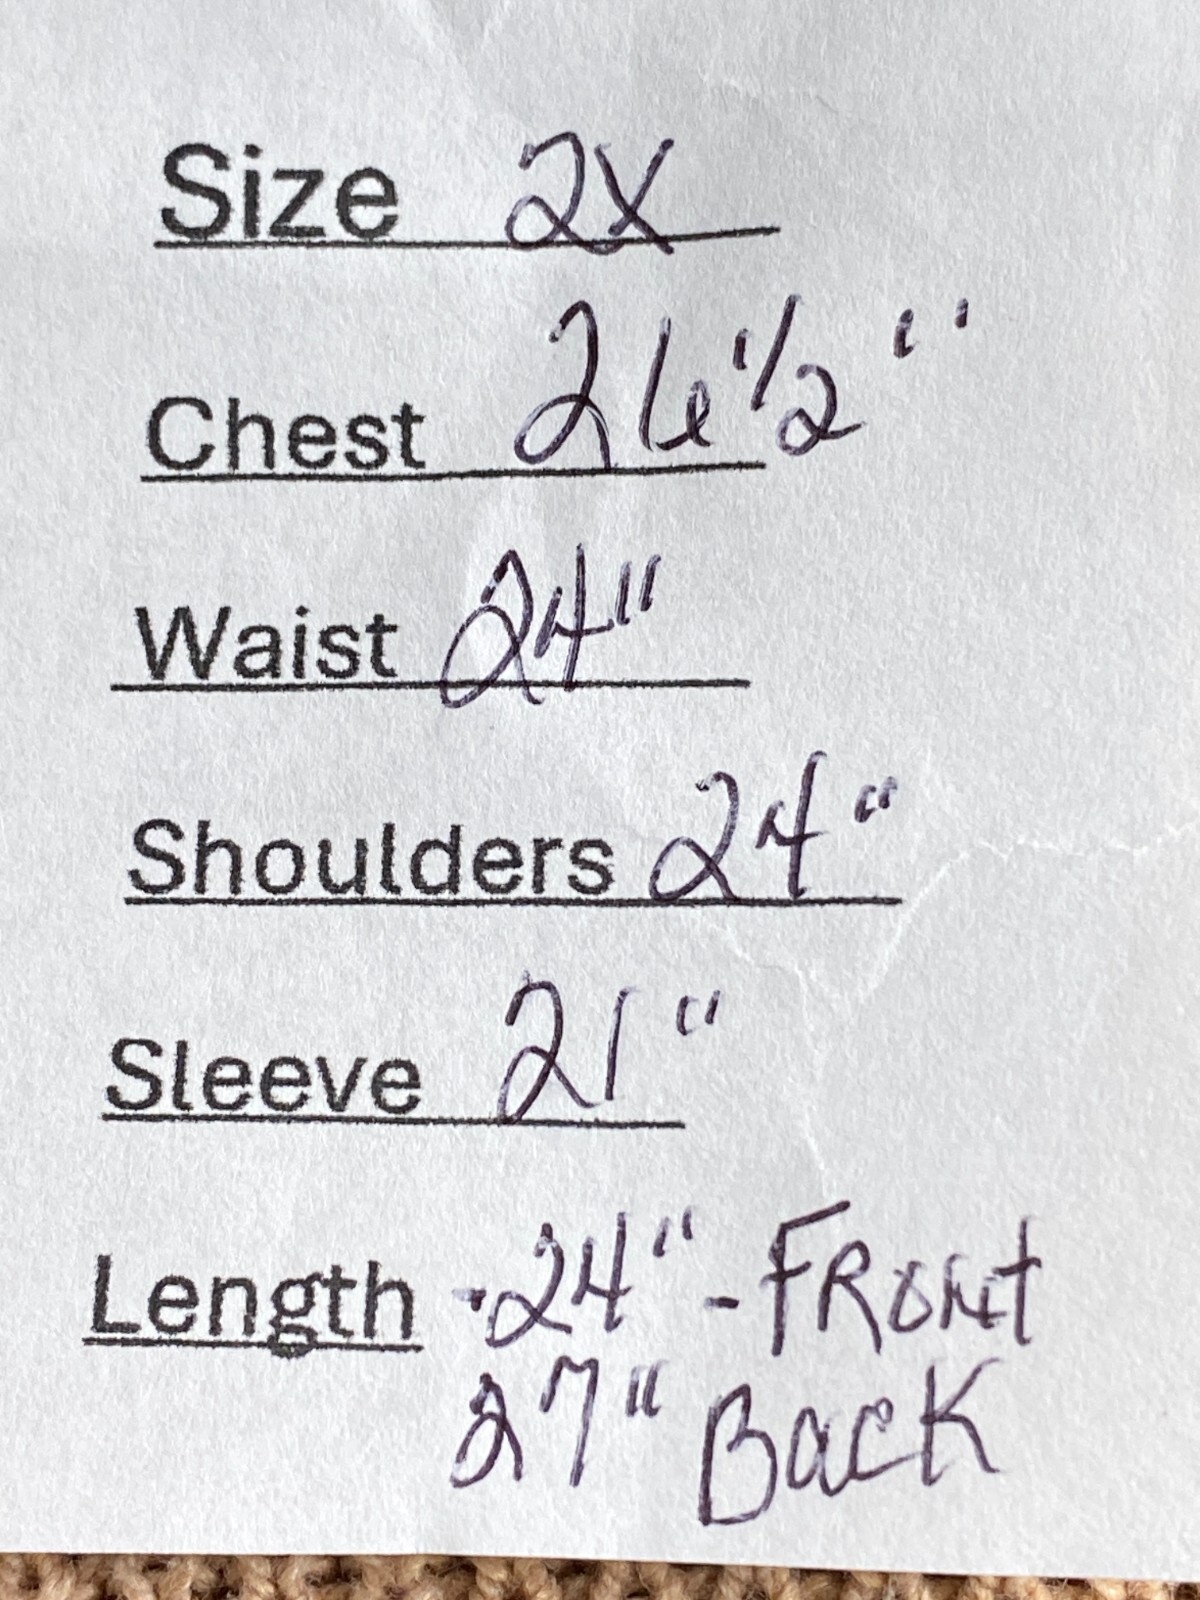 Size 2X
Chest 26 1/2"
Waist 24"
Shoulders 24"
Sleeve 21"
Length -24" - FRONt
27" BacK